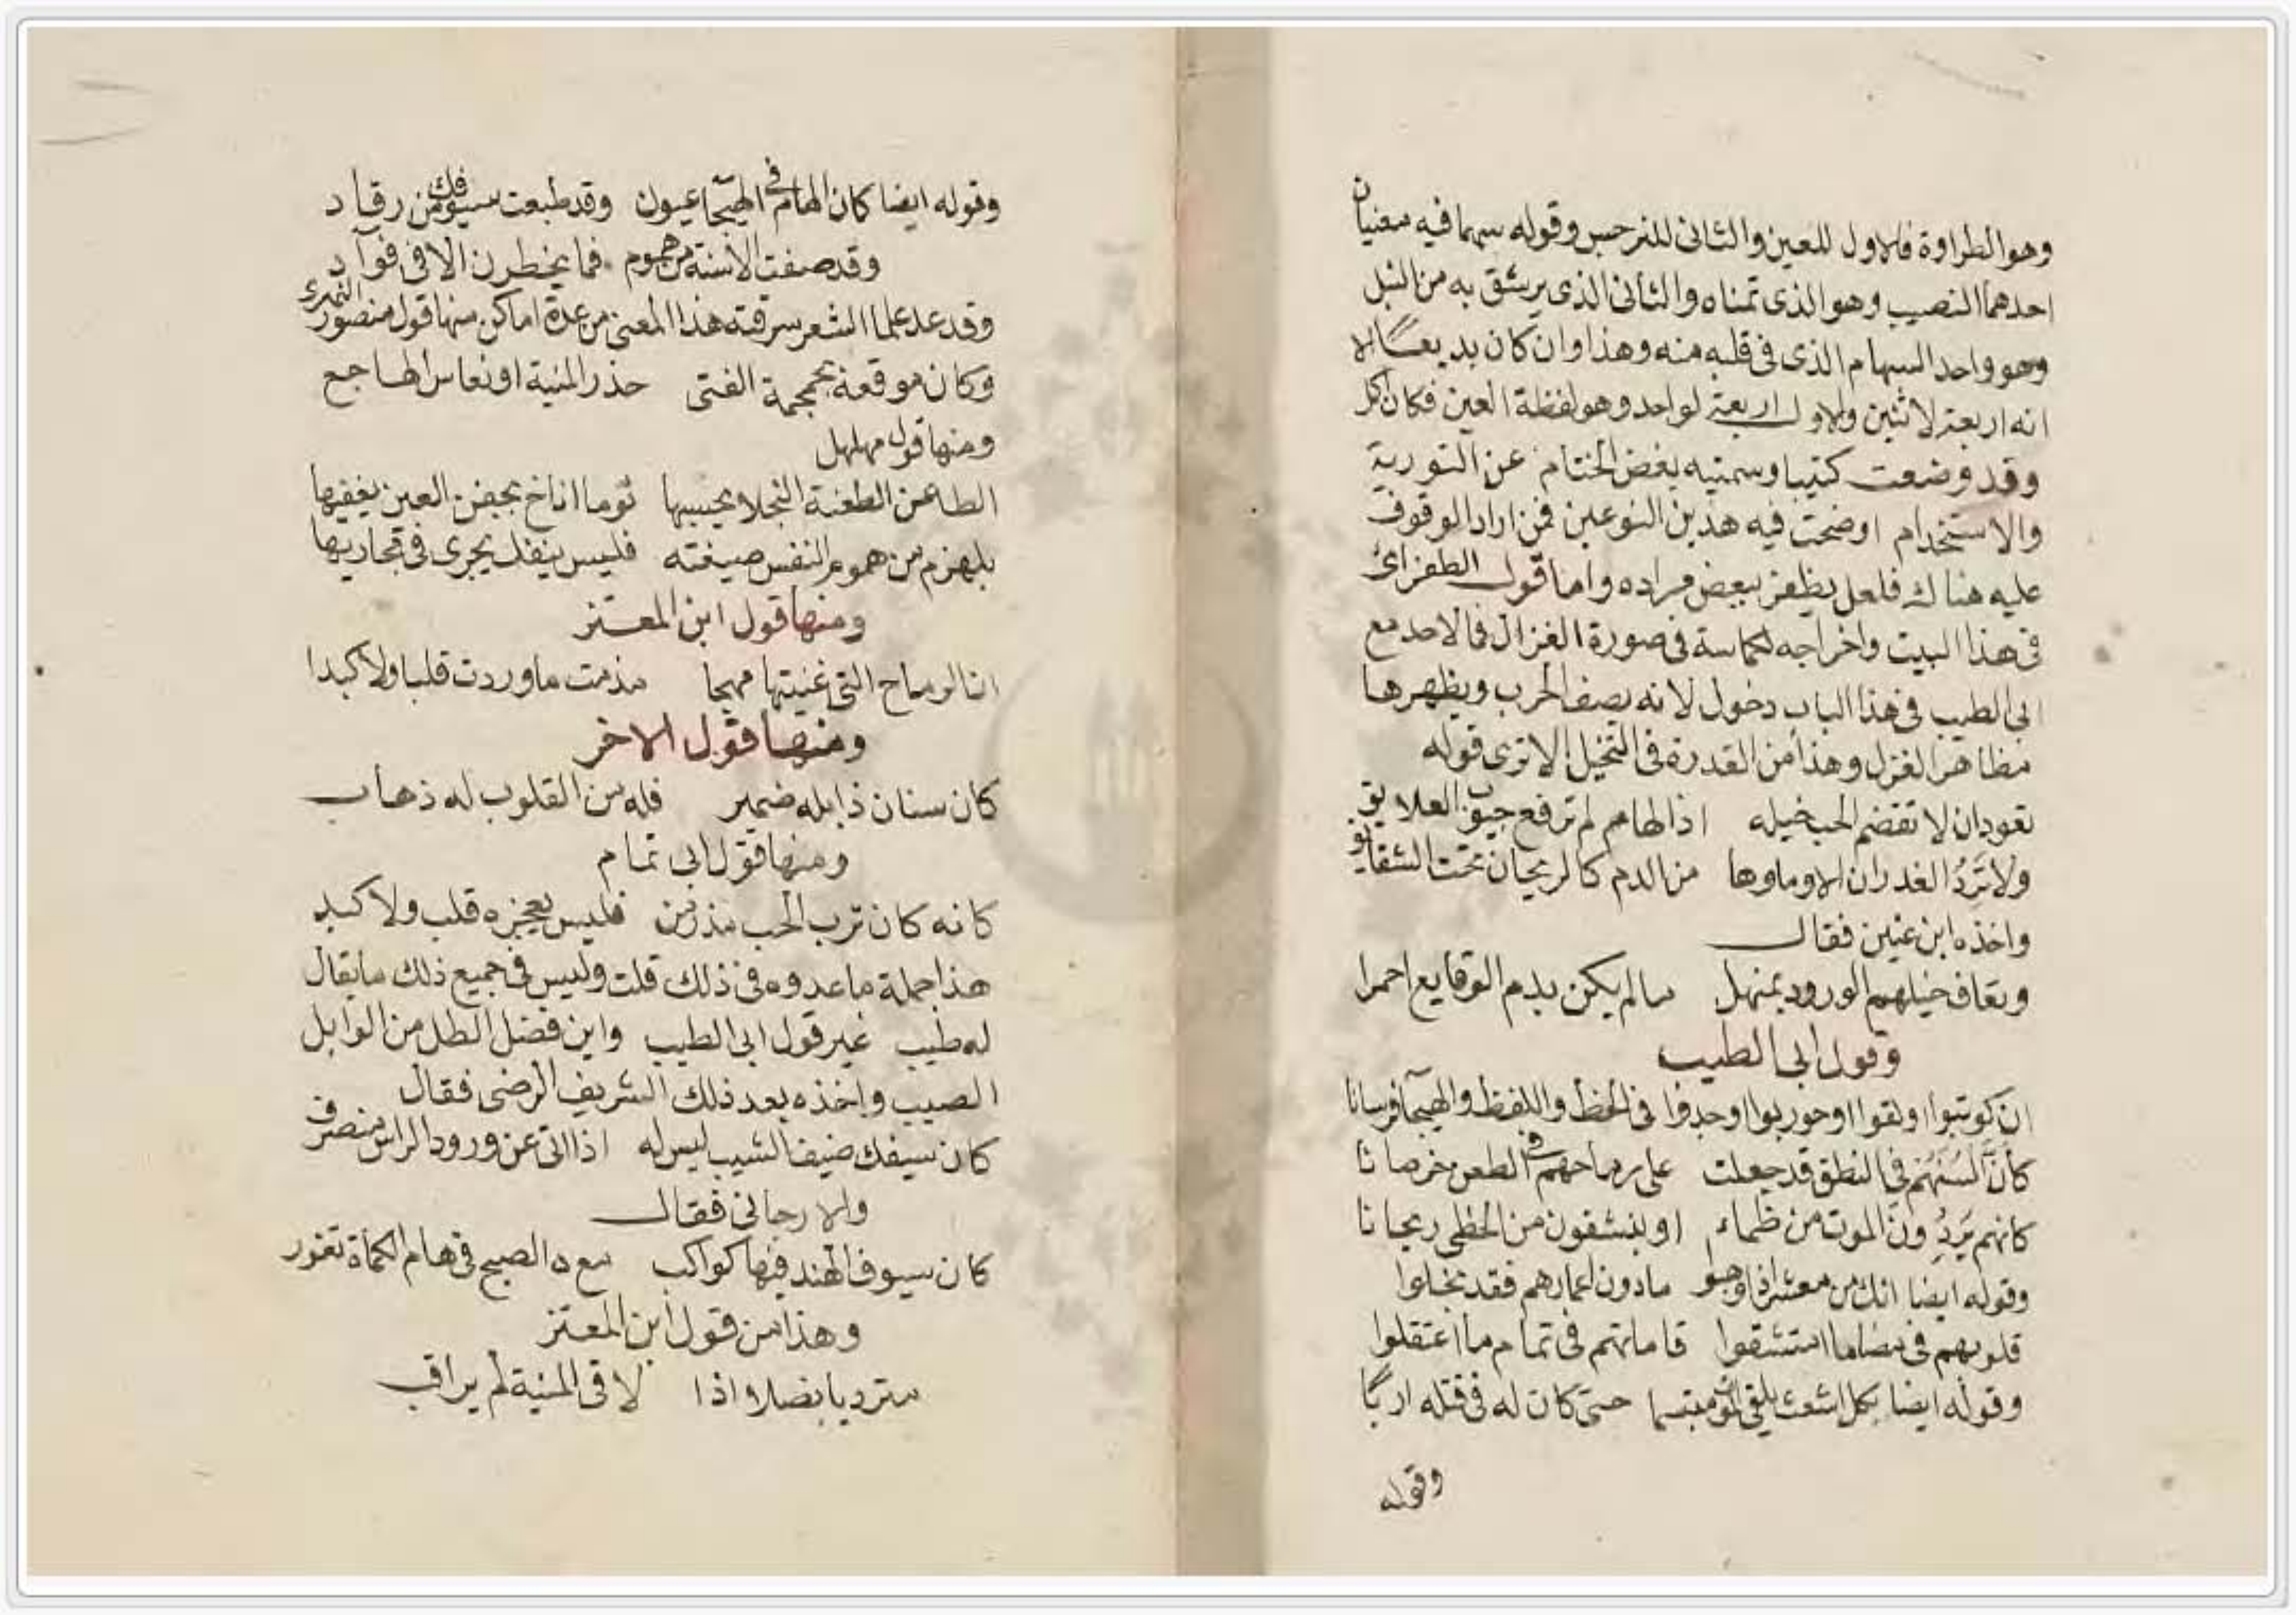 وهو الطراوة فالاول للعين والثانى للنرجس وقوله سهما فيه معنيان
احدهما النصيب وهو الذى تمناه والثانى الذى يرشق به من النبل
وهو واحد السهام الذى فى قلبه منه وهذا وان كان بديعا الا
انه اربعة لاثنين والاول اربعة لواحد وهو لفظة العين فكان اكل
وقد وضعت كتيبا وسميته بفض الختام عن التورية
والاستخدام اوضحت فيه هذين النوعين فمن اراد الوقوف
عليه هناك فلعل يظفر ببعض مراده واما قول الطغراى
فى هذا البيت واخراجه لحماسة فى صورة الغزال فما لاحد مع
ابى الطيب فى هذا الباب دخول لانه يصف الحرب ويظهرها
مظاهر الغزل وهذا من القدرة فى التخيل الا ترى قوله
تعود ان لا تقضم الحب خيله اذا الهام لم ترفع جيوب العلايق
ولا تَرِدُ الغدران الا وماوها من الدم كالريحان تحت الشقايق
واخذه ابن عنين فقال
وتعاف خيلهم الورود بمنهل ما لم يكن بدم الوقايع احمرا
وقول ابى الطيب
ان كوتبوا او لقوا او حوربوا وجدوا فى الخط واللفظ والهيجآ فرسانا
كأنَّ السنهُم فى النطق قد جعلت على رماحهم فى الطعن خرصانا
كانهم يَرِدُونَ الموت من ظماء او ينشقون من الخطى ريحانا
وقوله ايضا انك من معشر اذا وهبوا مادون اعمارهم فقد بخلوا
قلوبهم فى مضاما امتشقوا قاماتهم فى تمام ما اعتقلوا
وقوله ايضا بكل اشعث يلقى الموت مبتسما حتى كان له فى قتله اربا
وقوله
وقوله ايضا كان الهام فى الهيجآ عيون وقد طبعت سيوفك من رقاد
وقد صغت الاسنة من هموم فما يخطرن الا فى فوآد
وقد عد علما الشعر سرقته هذا المعنى من عدة اماكن منها قول منصور النمرى
وكان موقعه بجمجمة الفتى حذر المنية او نعاس الهاجع
ومنها قول مهلهل
الطاعن الطعنة النجلا يحسبها نوما اناخ بجفن العين يغفيها
بلهزم من هموم النفس صيغته فليس ينفك يجرى فى مجاريها
ومنها قول ابن المعتز
ان الرماح التى غذيتها مهجا مذمت ما وردت قلبا ولا كبدا
ومنها قول الاخر
كان سنان ذابله ضمير فله من القلوب له ذهاب
ومنها قول ابى تمام
كانه كان ترب الحب مذ زمن فليس يعجزه قلب ولا كبد
هذا جملة ما عدوه فى ذلك قلت وليس فى جميع ذلك ما يقال
له طيب غير قول ابى الطيب واين فضل الطل من الوابل
الصيب واخذه بعد ذلك الشريف الرضى فقال
كان سيفك ضيف الشيب ليس له اذا اتى عن ورود الراس منصرف
والارجانى فقال
كان سيوف الهند فيها كواكب مع الصبح فى هام الكماة تغور
وهذا من قول ابن المعتز
متردیا بصلا اذا لاقى المنية لم يراقب